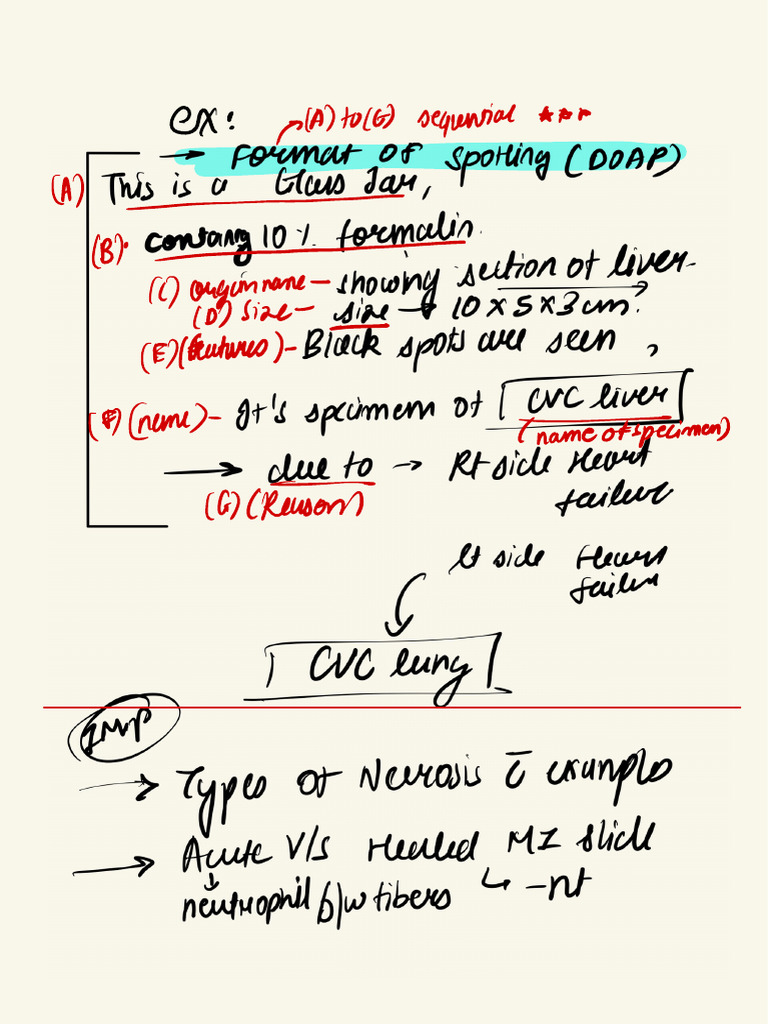 ex: (A) to (G) sequential ***
→ Format of Spotting (DOAP)
(A) This is a Glass Jar,
(B). containg 10% formalin.
(C) organ name – showing section of liver
(D) Size – size → 10 x 5 x 3 cm.
(E) (features) – Black spots are seen,
(F) (name) – It's specimen of CVC liver
(name of specimen)
→ due to → Rt side Heart
(G) (Reason) failure
lt side Heart
failure
CVC lung
IMP
→ Types of Necrosis c̄ example
→ Acute V/s Healed MI slide
neutrophil b/w fibers ↳ –nt